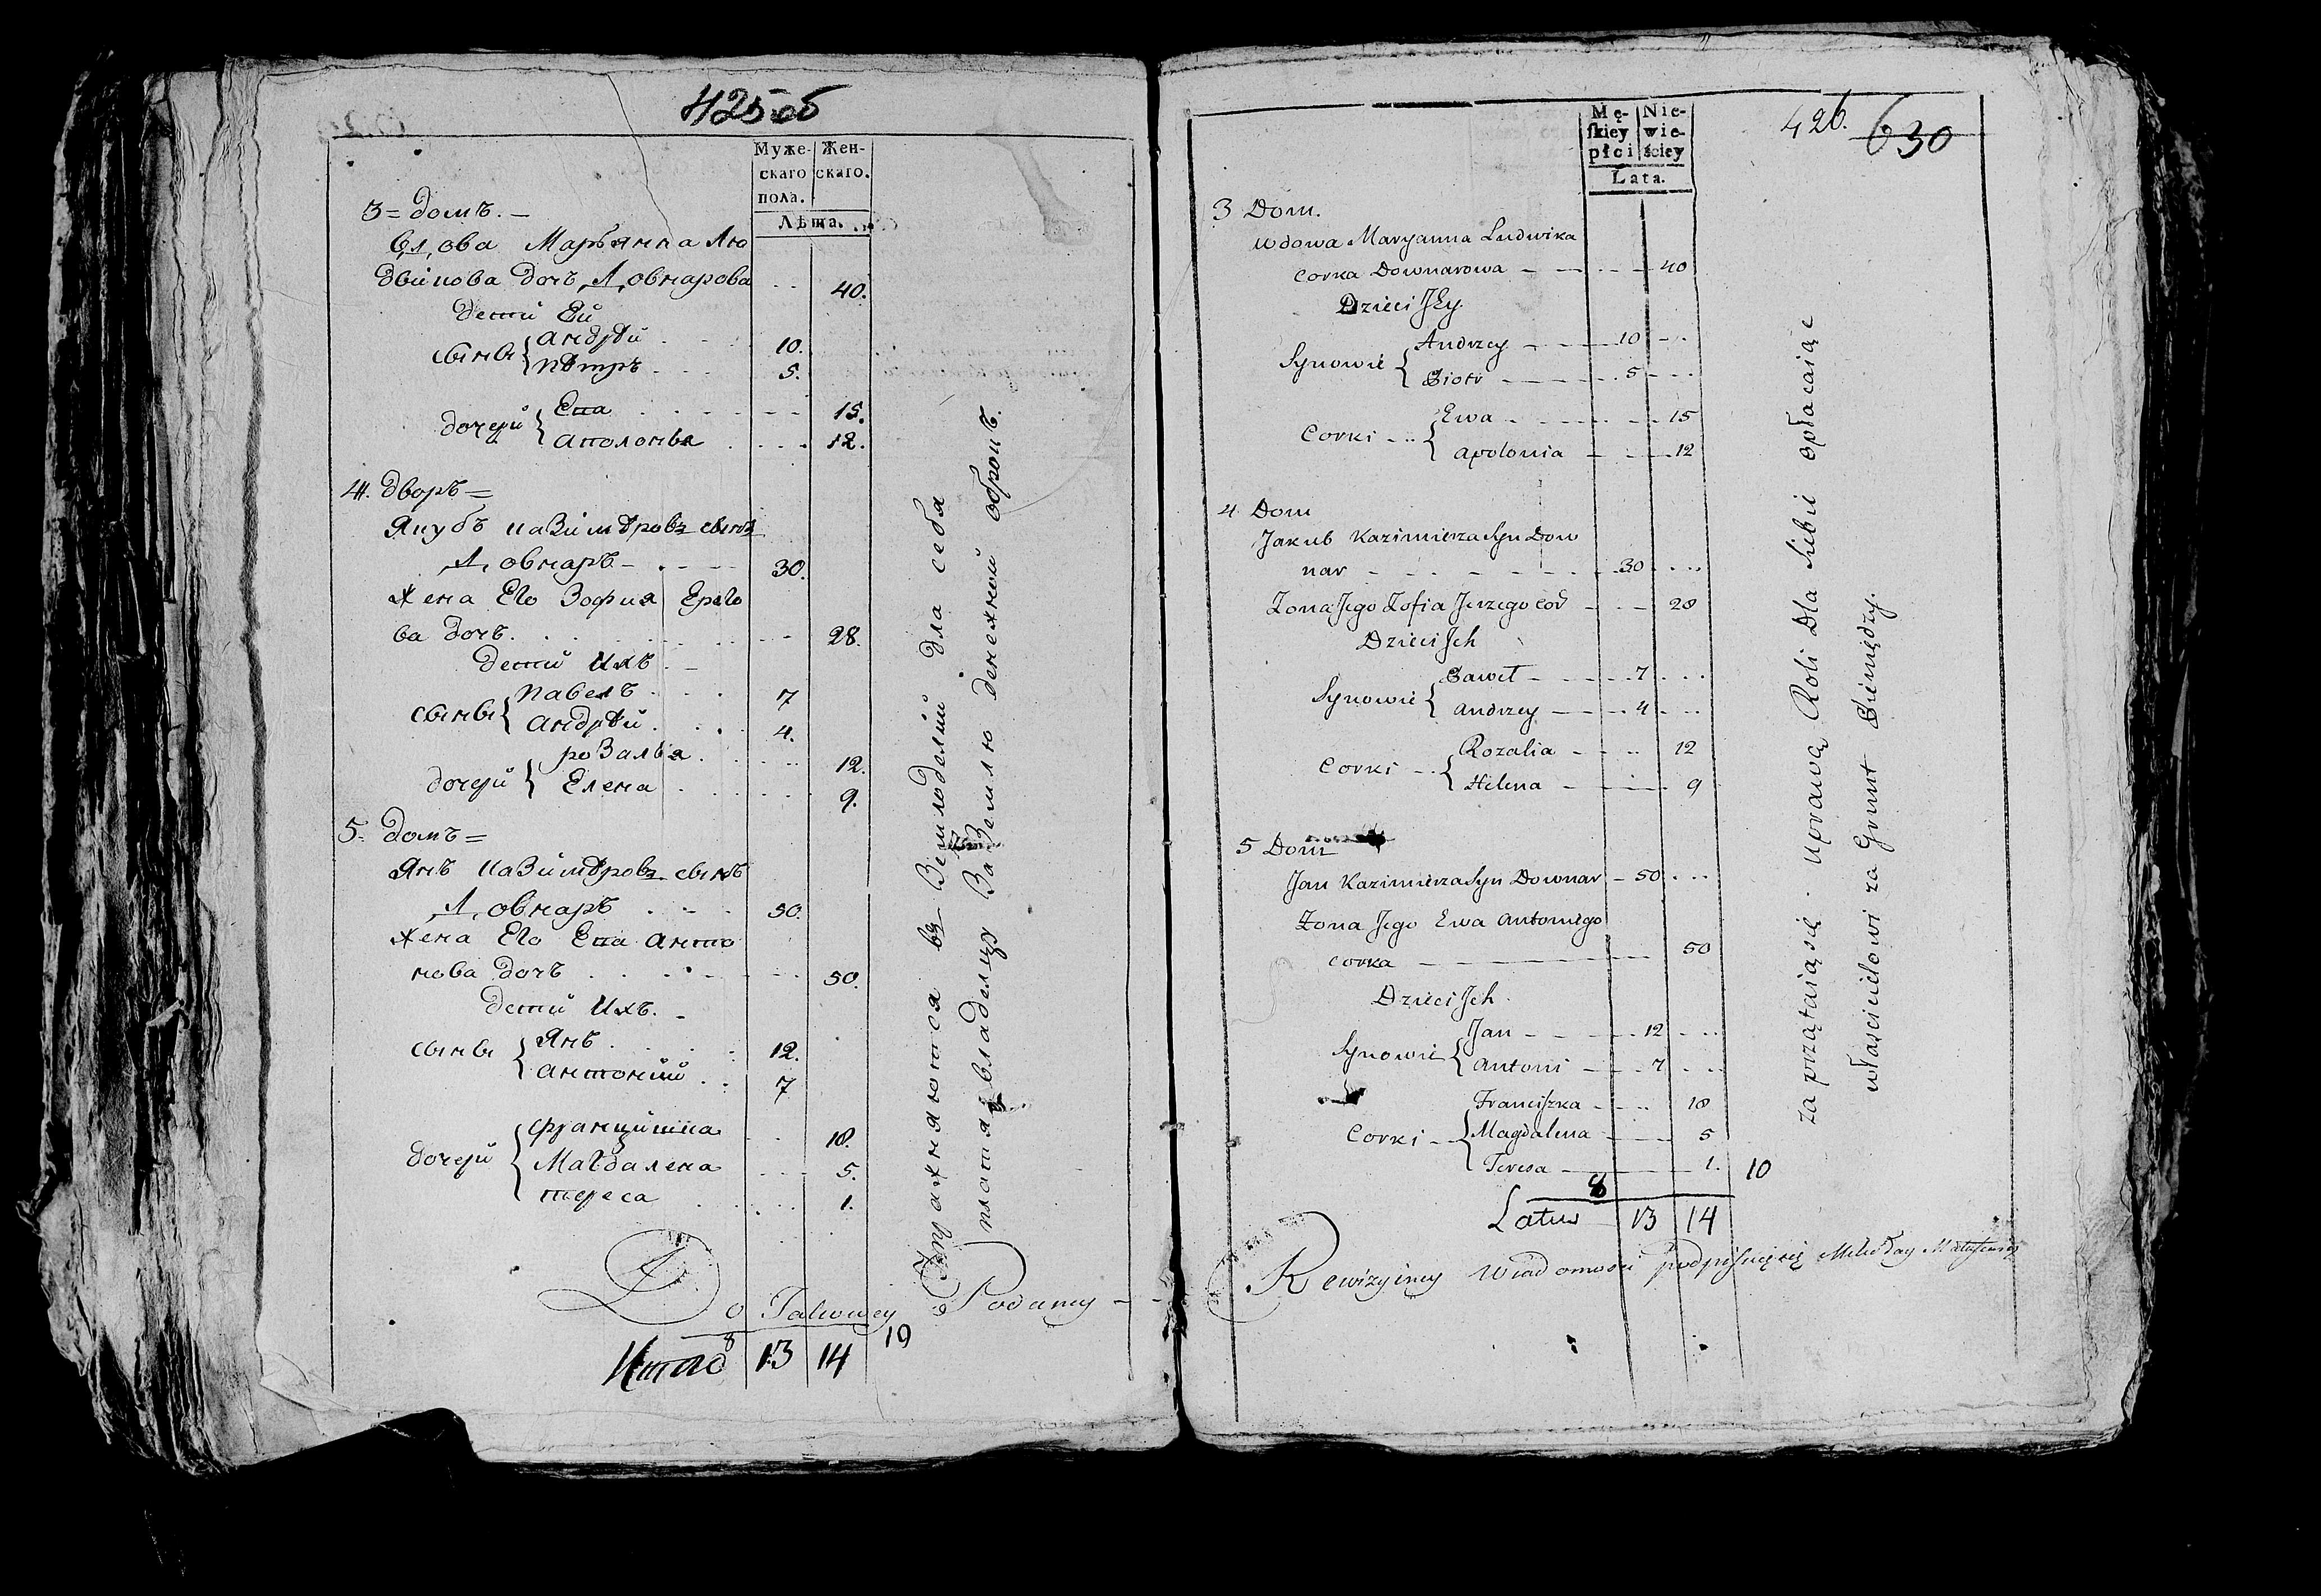 425 об
Муже-
скаго
пола.
Жен-
скаго.
Лѣта.
3= домъ. -
вдова Марьянна Лю
двикова дочъ Довнарова 40.
дети Ей
сыны { андрѣй 10.
пѣтръ 5.
дочери { Ева 15.
аполонѣя 12.
4. дворъ =
Якубъ казимѣровъ сынъ
Довнаръ 30.
жена Его Зофия Ерего
ва дочъ. 28.
дети ихъ -
сыны { павелъ 7
андрѣй 4.
дочери { розалья 12.
Елена 9.
5. домъ =
Янъ казимѣровъ сынъ
Довнаръ 50.
жена Его Ева анто
нова дочъ 50.
дети ихъ. -
сыны { Янъ 12.
антоний 7
дочери { францишка 18.
Магдалена 5.
тереса 1.
Упражняются въ Земледелии для себя
платя владельцу за Землю денежной оброкъ.
Do Takowey Podaney - -
8 10
Итаго 13 14
426. 630
Mę-
skiey
płci
Nie-
wie-
ściey
Lata.
3 Dom.
Wdowa Maryanna Ludwika
corka Downarowa 40
Dzieci Jey
Synowie { Andrzey 10
Piotr 5
Corki { Ewa 15
Apolonia 12
4 Dom
Jakub Kazimierza Syn Dow
nar 30
Zona Jego Zofia Jerzego cor 28
Dzieci Ich
Synowie { Paweł 7
Andrzey 4
Corki { Rozalia 12
Helena 9
5 Dom
Jan Kazimierza Syn Downar 50
Zona Jego Ewa Antoniego
corka 50
Dzieci Ich
Synowie { Jan 12
Antoni 7
Corki { Franciszka 18
Magdalena 5
Teresa 1. 10
8
Latus 13 14
zaprzątaiąsię uprawą Roli Dla Siebie opłacaiąc
włascicielowi za Grunt Pieniędzy.
Rewizyiney Wiadomosci podpisuię się Mikołay